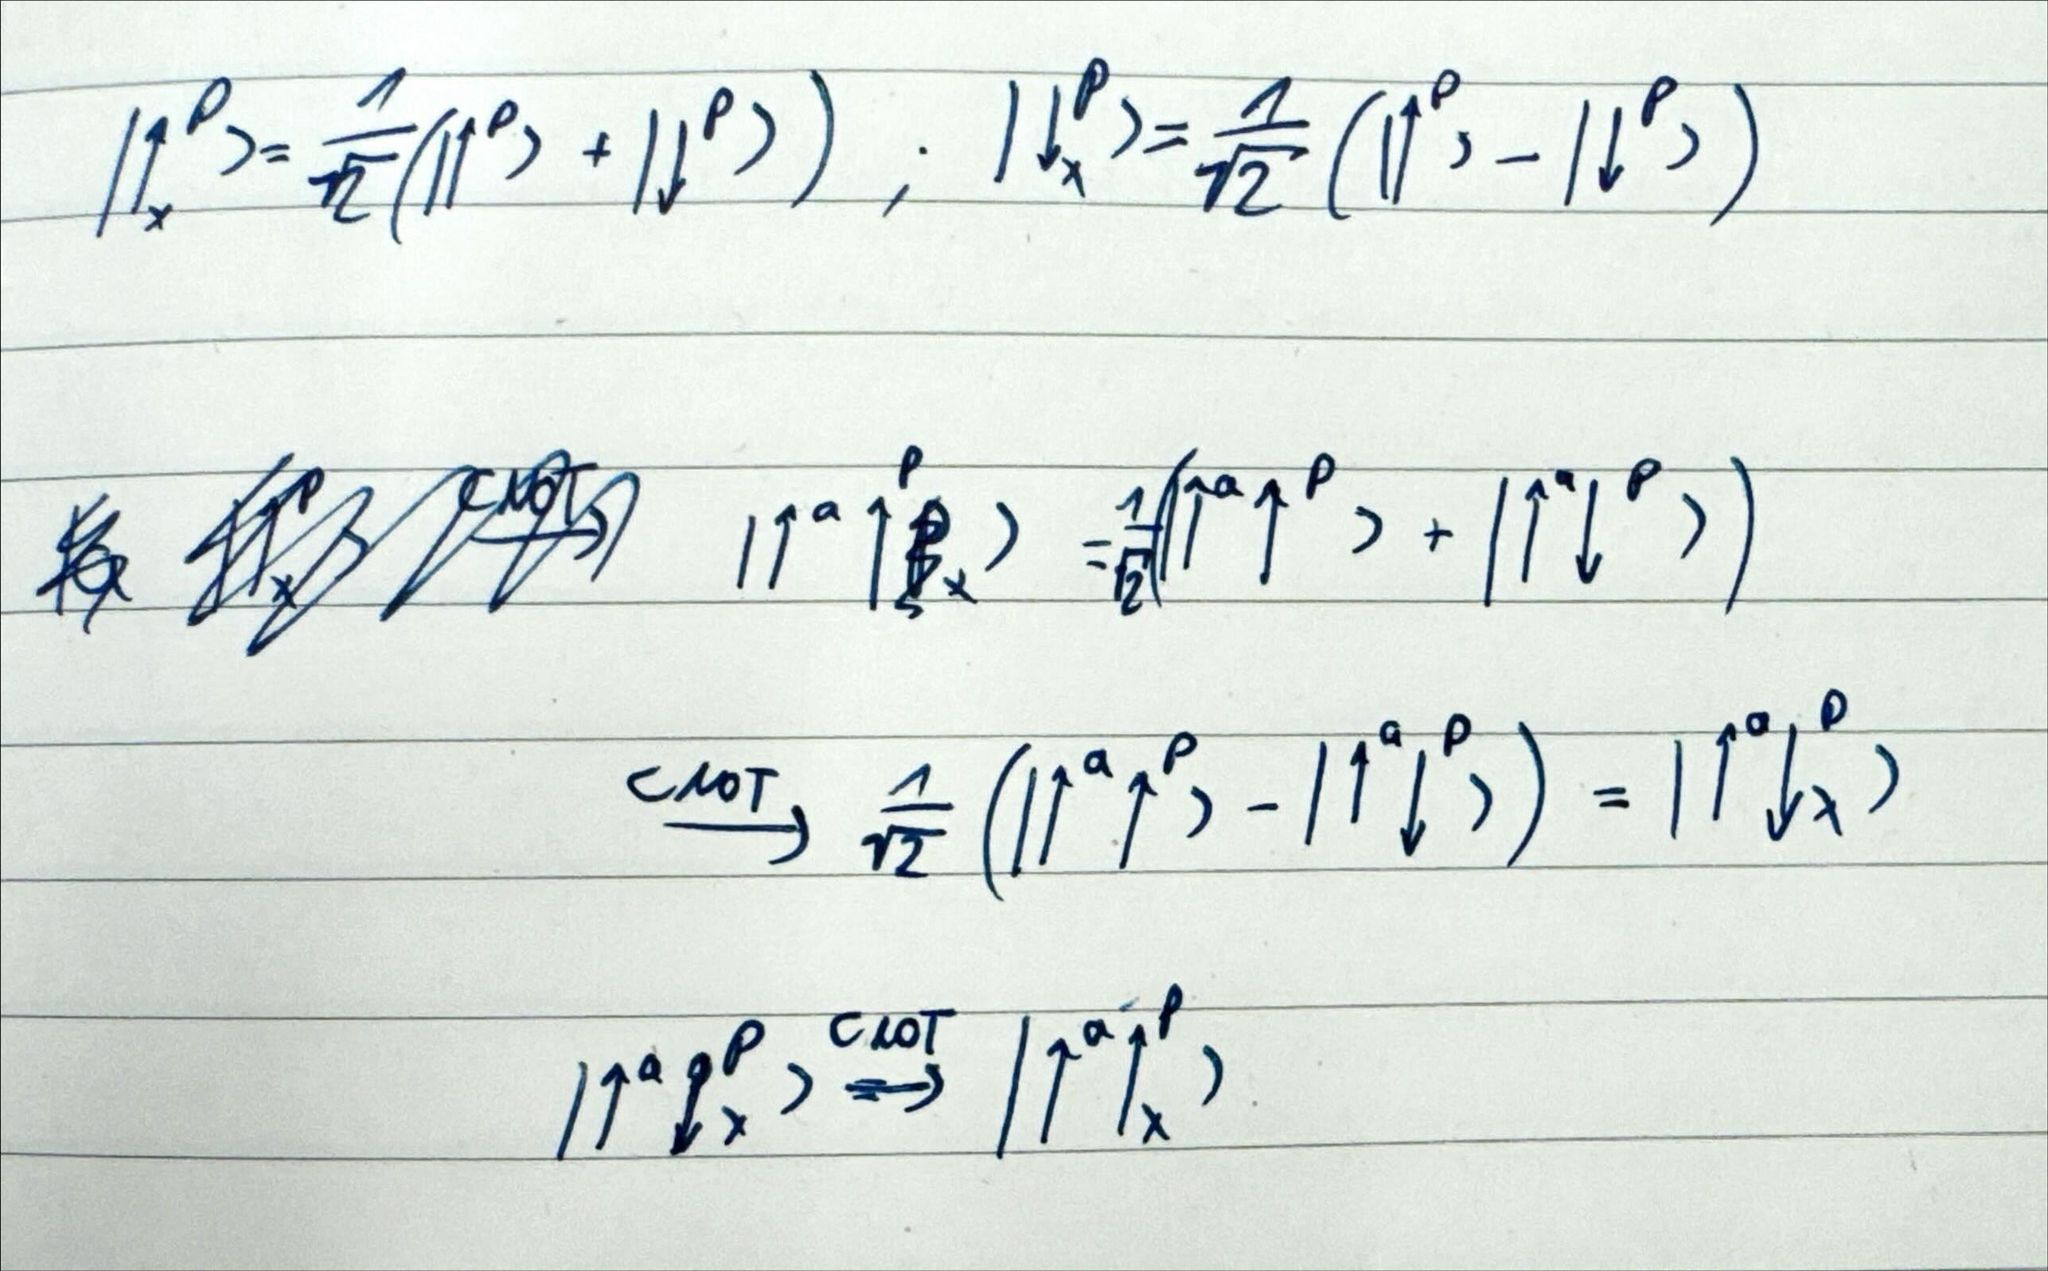 |↑ₓᴾ⟩ = 1/√2 (|↑ᴾ⟩ + |↓ᴾ⟩) ; |↓ₓᴾ⟩ = 1/√2 (|↑ᴾ⟩ − |↓ᴾ⟩)
|↑ᵃ ↑ₓᴾ⟩ = 1/√2 (|↑ᵃ ↑ᴾ⟩ + |↑ᵃ ↓ᴾ⟩)
CNOT → 1/√2 (|↑ᵃ ↑ᴾ⟩ − |↑ᵃ ↓ᴾ⟩) = |↑ᵃ ↓ₓᴾ⟩
|↑ᵃ ↓ₓᴾ⟩ CNOT → |↑ᵃ ↑ₓᴾ⟩